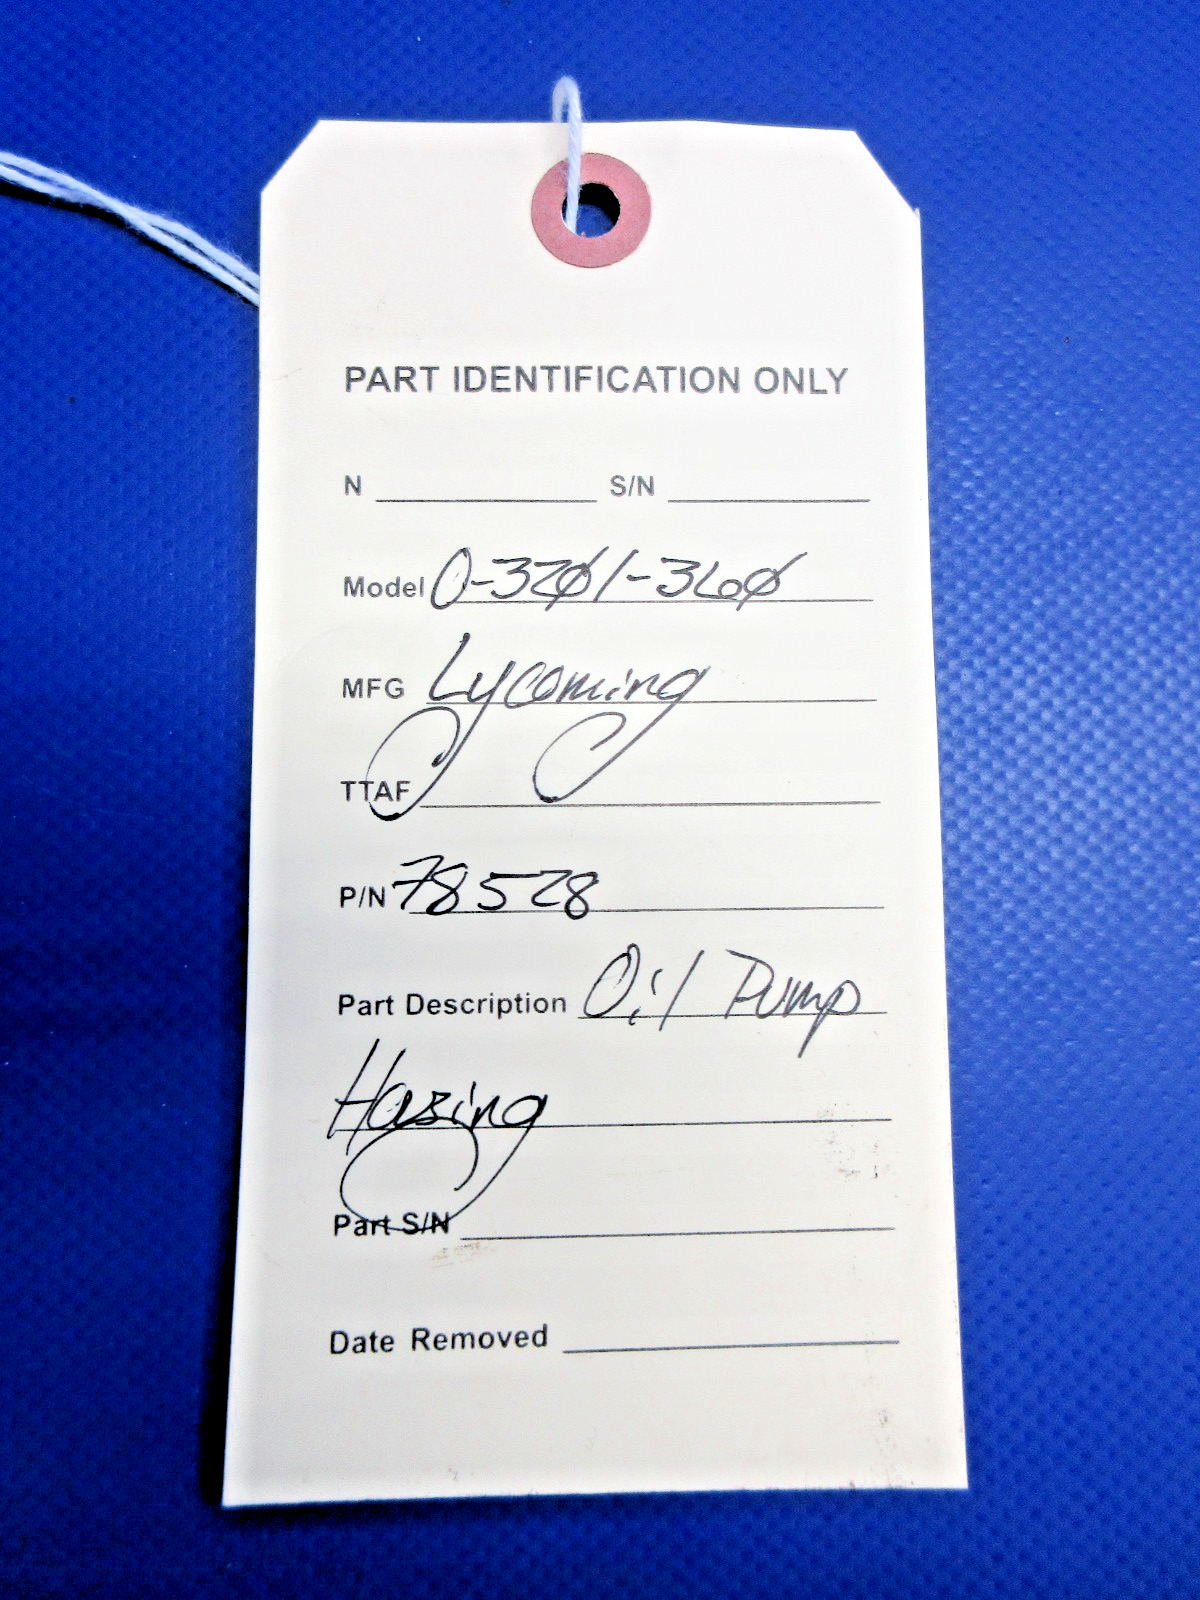 PART IDENTIFICATION ONLY
N S/N
Model O-320/-360
MFG Lycoming
TTAF
P/N 78528
Part Description Oil Pump
Hosing
Part S/N
Date Removed